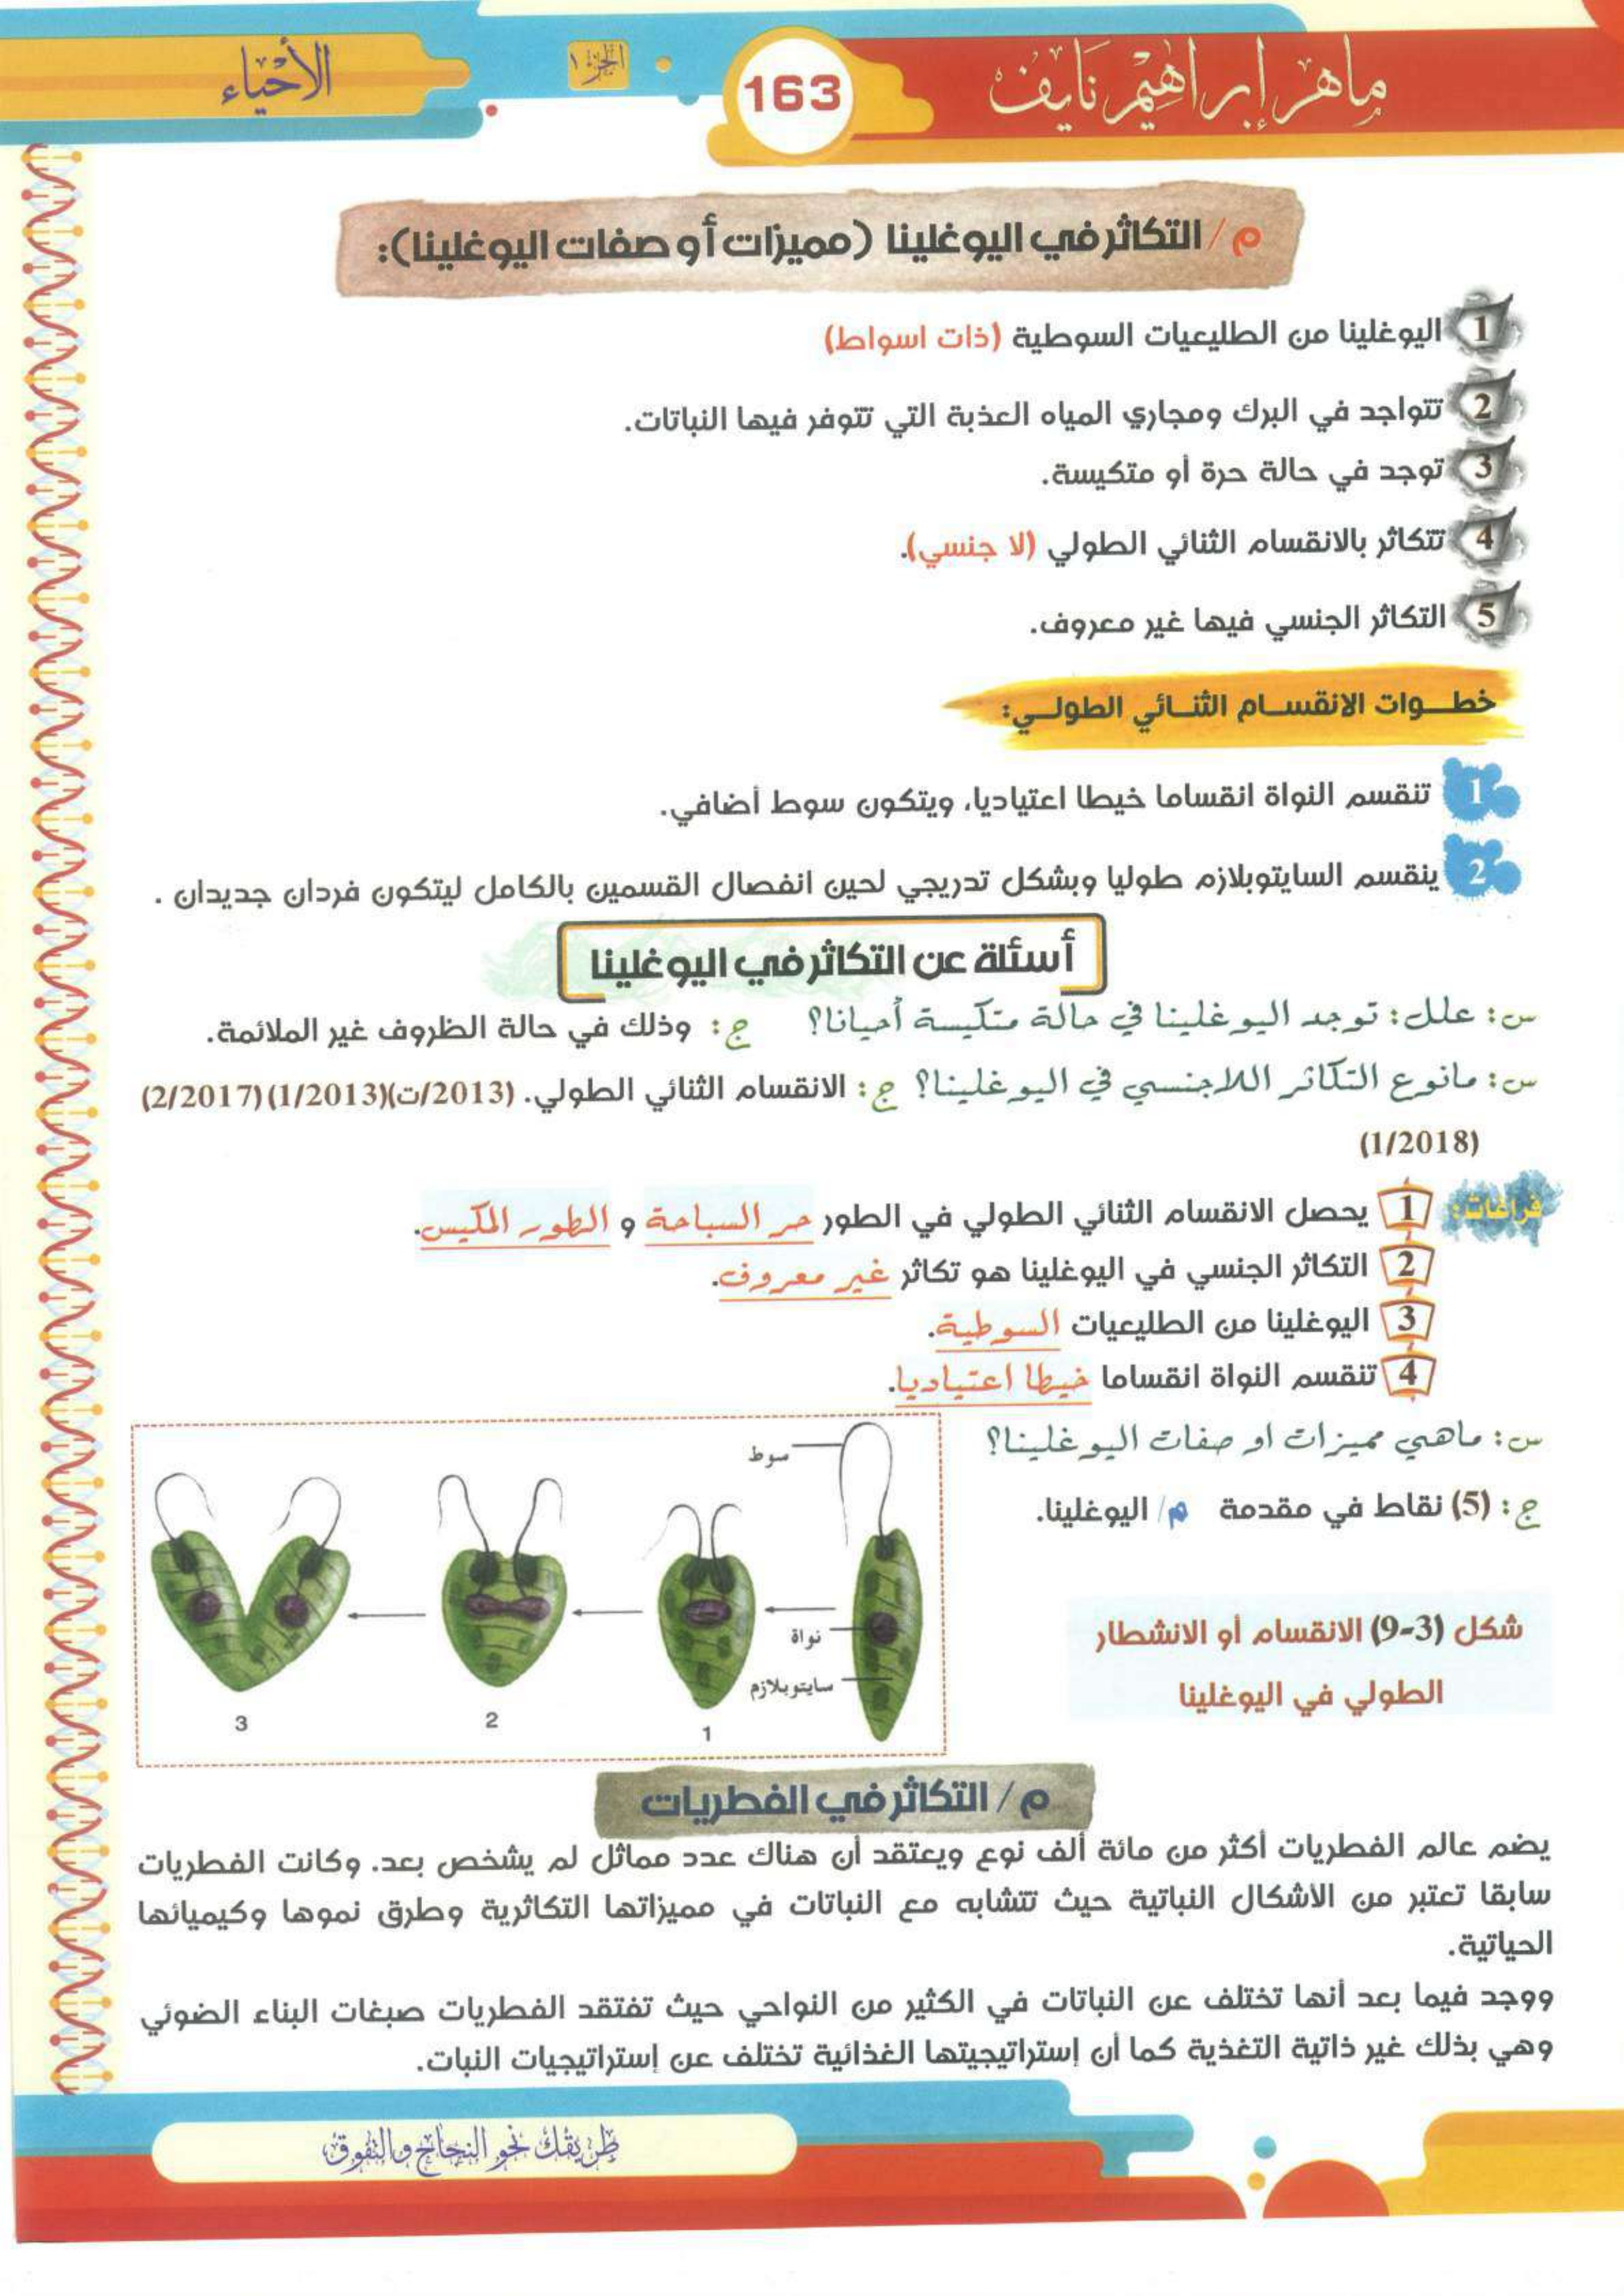 ماهر إبراهيم نايف
163
الجزء ١
الأحياء
م/ التكاثر في اليوغلينا (مميزات أو صفات اليوغلينا):
1 اليوغلينا من الطليعيات السوطية (ذات اسواط)
2 تتواجد في البرك ومجاري المياه العذبة التي تتوفر فيها النباتات.
3 توجد في حالة حرة أو متكيسة.
4 تتكاثر بالانقسام الثنائي الطولي (لا جنسي).
5 التكاثر الجنسي فيها غير معروف.
خطوات الانقسام الثنائي الطولي:
1 تنقسم النواة انقساما خيطا اعتياديا، ويتكون سوط أضافي.
2 ينقسم السايتوبلازم طوليا وبشكل تدريجي لحين انفصال القسمين بالكامل ليتكون فردان جديدان .
أسئلة عن التكاثر في اليوغلينا
س: علل: توجد اليوغلينا في حالة متكيسة أحيانا؟ ج: وذلك في حالة الظروف غير الملائمة.
س: مانوع التكاثر اللاجنسي في اليوغلينا؟ ج: الانقسام الثنائي الطولي. (2013/ت)(1/2013)(2/2017)
(1/2018)
فراغات: 1 يحصل الانقسام الثنائي الطولي في الطور حر السباحة و الطور المكيس.
2 التكاثر الجنسي في اليوغلينا هو تكاثر غير معروف.
3 اليوغلينا من الطليعيات السوطية.
4 تنقسم النواة انقساما خيطا اعتياديا.
س: ماهي مميزات او صفات اليوغلينا؟
ج: (5) نقاط في مقدمة م/ اليوغلينا.
شكل (3-9) الانقسام أو الانشطار
الطولي في اليوغلينا
سوط
نواة
سايتوبلازم
1
2
3
م/ التكاثر في الفطريات
يضم عالم الفطريات أكثر من مائة ألف نوع ويعتقد أن هناك عدد مماثل لم يشخص بعد. وكانت الفطريات
سابقا تعتبر من الأشكال النباتية حيث تتشابه مع النباتات في مميزاتها التكاثرية وطرق نموها وكيميائها
الحياتية.
ووجد فيما بعد أنها تختلف عن النباتات في الكثير من النواحي حيث تفتقد الفطريات صبغات البناء الضوئي
وهي بذلك غير ذاتية التغذية كما أن إستراتيجيتها الغذائية تختلف عن إستراتيجيات النبات.
طريقك نحو النجاح والتفوق